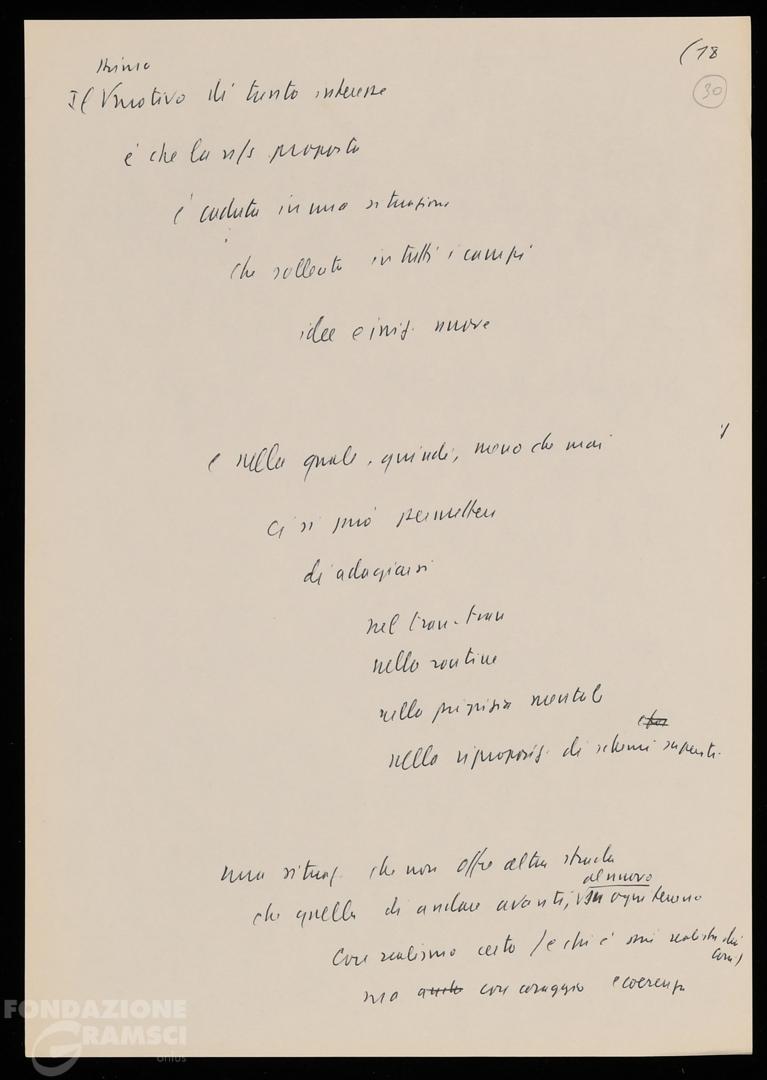 (18
30
primo
Il V motivo di tanto interesse
è che la n/s proposta
è caduta in una situazione
che sollecita in tutti i campi
idee e iniz. nuove
e nella quale, quindi, meno che mai
ci si può permettere
di adagiarsi
nel tran-tran
nella routine
nella pigrizia mentale
nella riproposiz. di schemi superati.
una situaz. che non offre altra strada
al nuovo
che quella di andare avanti, V su ogni terreno
con realismo certo (e chi è più realista dei
com.)
ma anche con coraggio e coerenza
FONDAZIONE
GRAMSCI
onlus